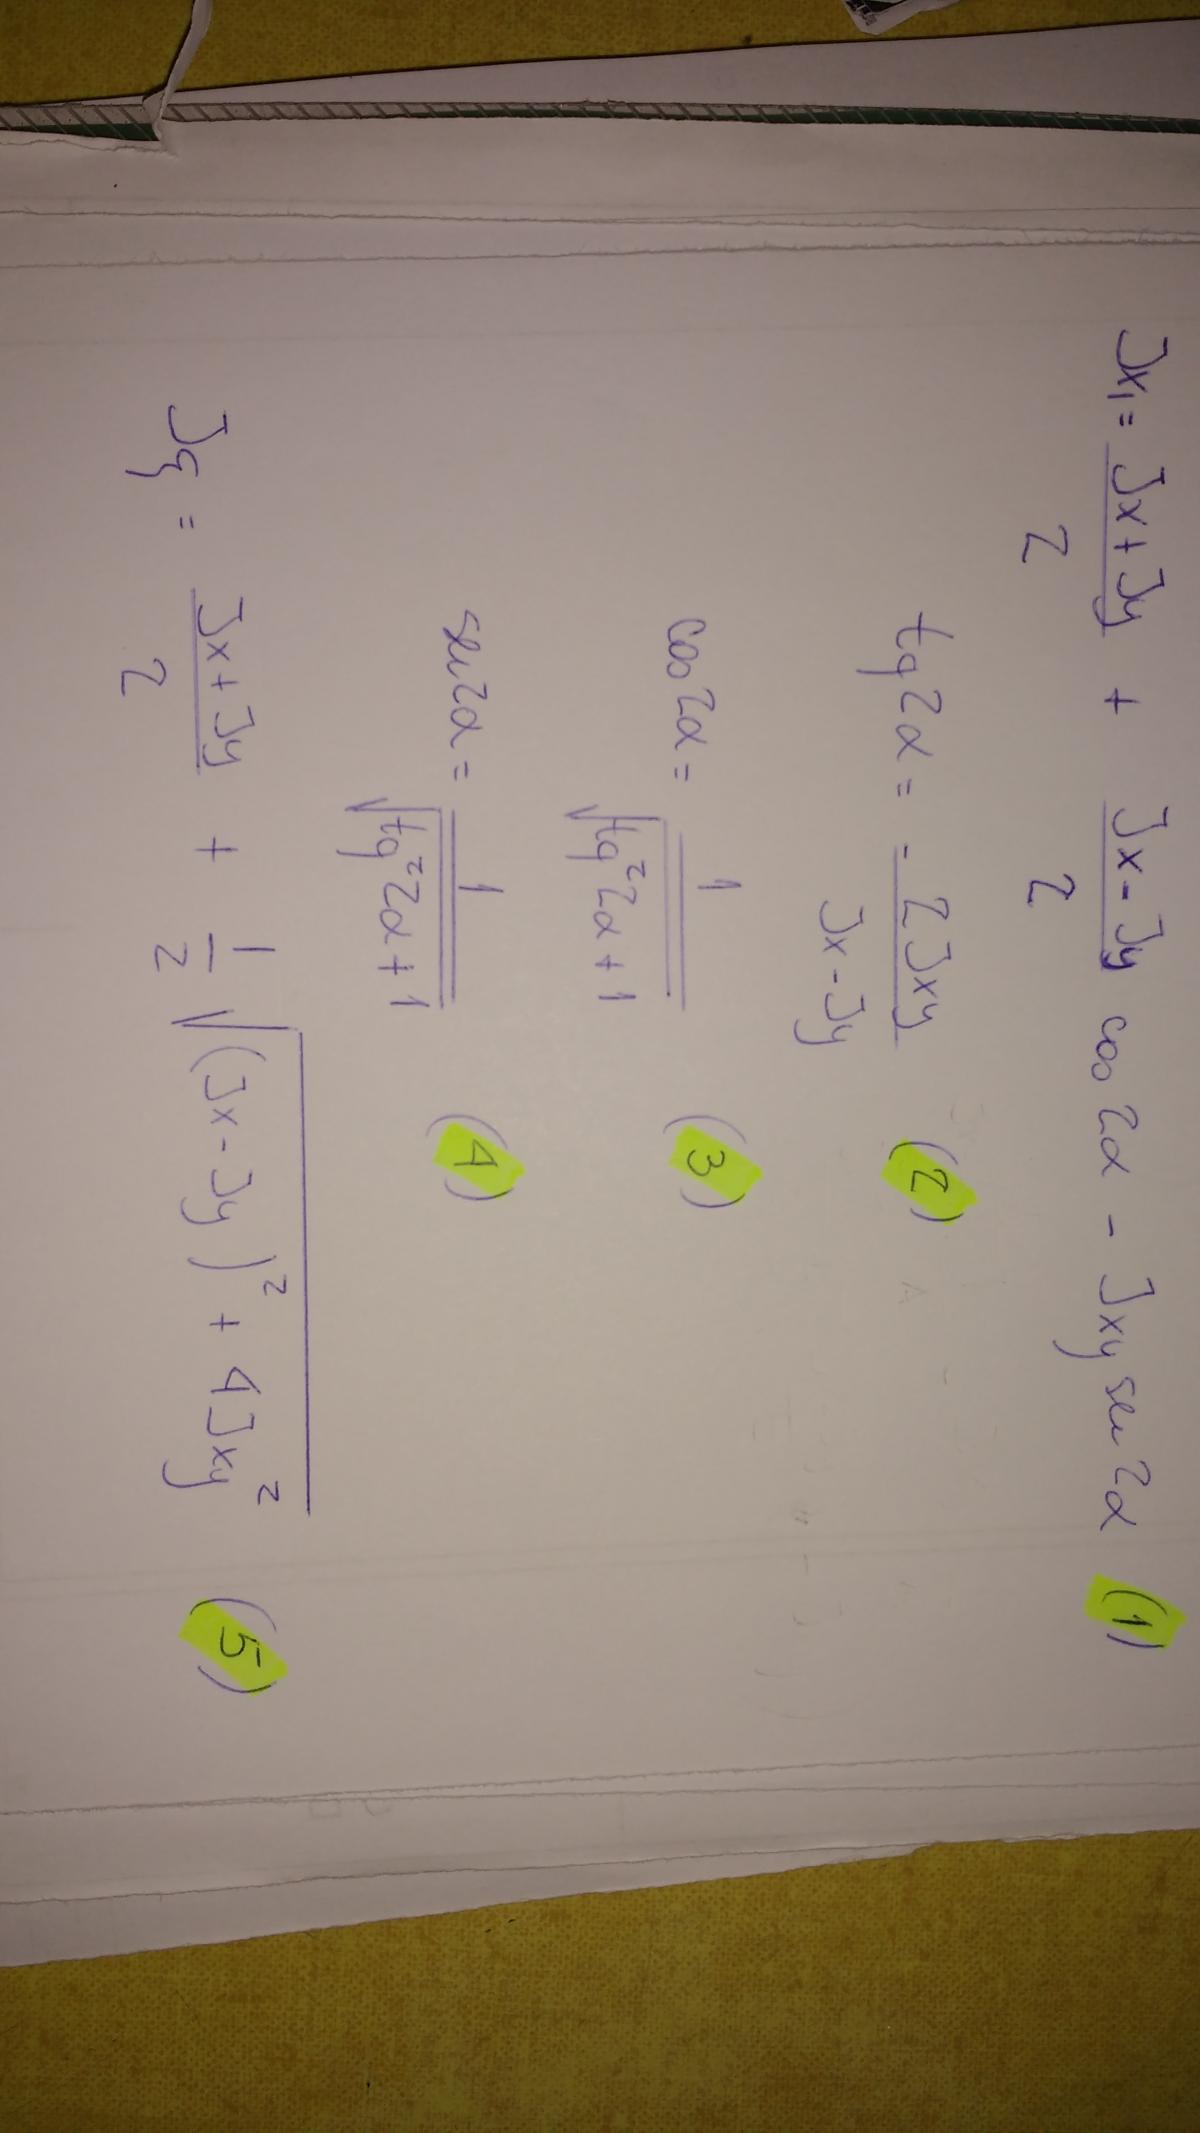 Jx₁ = (Jx + Jy)/2 + (Jx - Jy)/2 cos 2α - Jxy sen 2α (1)
tg 2α = - 2Jxy/(Jx - Jy) (2)
cos 2α = 1/√(tg² 2α + 1) (3)
sen 2α = 1/√(tg² 2α + 1) (4)
Jξ = (Jx + Jy)/2 + 1/2 √((Jx - Jy)² + 4Jxy²) (5)